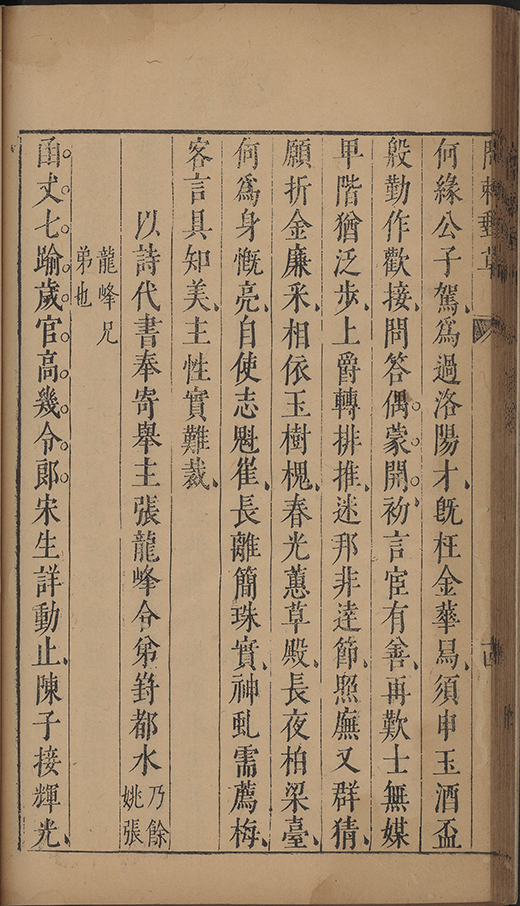 何緣公子駕爲過洛陽才旣枉金華舄須申玉酒盃
殷勤作歡接問答偶蒙開初言宦有善再歎士無媒
甲階猶泛步上爵轉排推迷邦非逹節照廡又群猜
願折金廉采相依玉樹槐春光蕙草殿長夜柏梁臺
何爲身慨亮自使志魁崔長離簡珠實神虬需薦梅
客言具知美主性實難裁
以詩代書奉寄舉主張龍峰令弟都水乃餘姚張
龍峰兄弟也
函丈七踰歲官高幾令郎宋生詳動止陳子接輝光